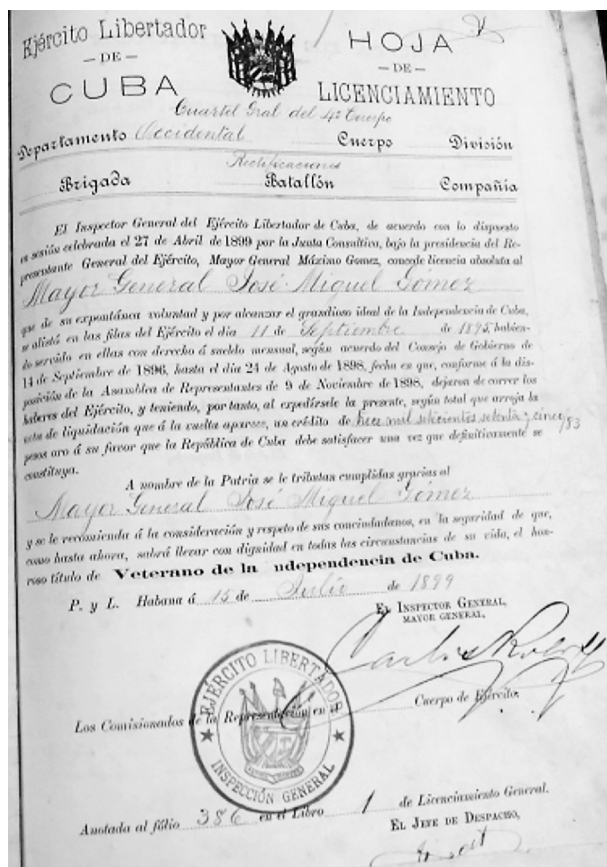 Ejército Libertador
— DE —
CUBA
HOJA
— DE —
LICENCIAMIENTO
Cuartel Gral del 4º Cuerpo
Departamento Occidental Cuerpo División
Rectificaciones
Brigada Batallón Compañía
El Inspector General del Ejército Libertador de Cuba, de acuerdo con lo dispuesto
en sesión celebrada el 27 de Abril de 1899 por la Junta Consultiva, bajo la presidencia del Re-
presentante General del Ejército, Mayor General Máximo Gomez, concede licencia absoluta al
Mayor General José Miguel Gómez
que de su expontánea voluntad y por alcanzar el grandioso ideal de la Independencia de Cuba,
se alistó en las filas del Ejército el dia 11 de Septiembre de 1895, habien-
do servido en ellas con derecho á sueldo mensual, según acuerdo del Consejo de Gobierno de
14 de Septiembre de 1896, hasta el dia 24 de Agosto de 1898, fecha en que, conforme á la dis-
posición de la Asamblea de Representantes de 9 de Noviembre de 1898, dejaron de correr los
haberes del Ejército, y teniendo, por tanto, al expedírsele la presente, según total que arroja la
nota de liquidación que á la vuelta aparece, un crédito de trece mil setecientos setenta y cinco /83
pesos oro á su favor que la República de Cuba debe satisfacer una vez que definitivamente se
constituya.
A nombre de la Patria se le tributan cumplidas gracias al
Mayor General José Miguel Gómez
y se le recomienda á la consideración y respeto de sus conciudadanos, en la seguridad de que,
como hasta ahora, sabrá llevar con dignidad en todas las circunstancias de su vida, el hon-
roso título de Veterano de la ndependencia de Cuba.
P. y L. Habana á 15 de Julio de 1899
EL INSPECTOR GENERAL,
MAYOR GENERAL,
Carlos Roloff
EJÉRCITO LIBERTADOR
INSPECCIÓN GENERAL
Los Comisionados de la Representación en el Cuerpo de Ejército.
Anotada al fólio 386 en el Libro 1 de Licenciamiento General.
EL JEFE DE DESPACHO,